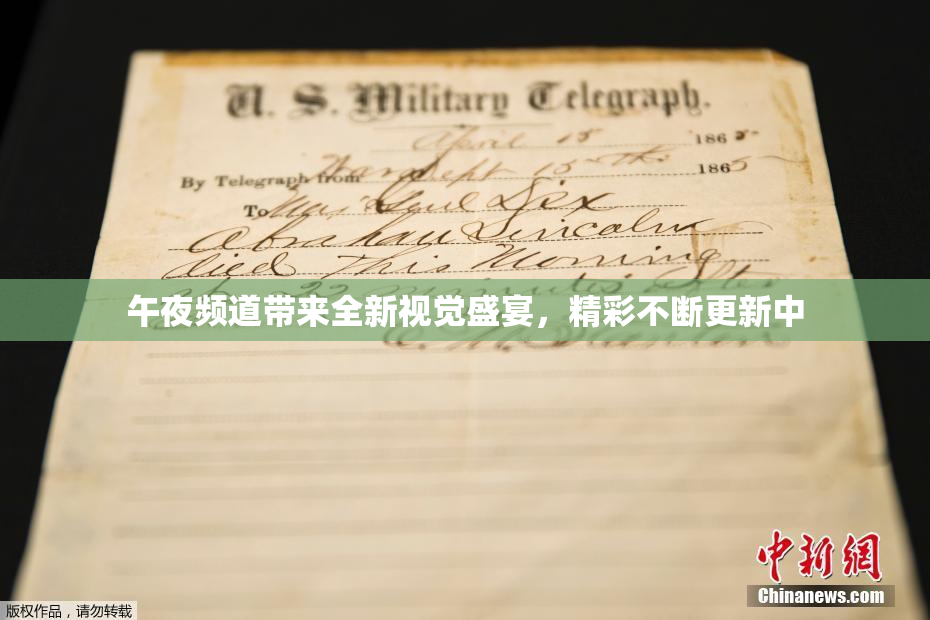 U. S. Military Telegraph.
April 15 1865
By Telegraph from War Dept 15th 1865
To Maj Genl Dix
Abraham Lincoln
died This Morning
at 22 minutes after
午夜频道带来全新视觉盛宴，精彩不断更新中
E. M. Stanton
中新网
版权作品，请勿转载
Chinanews.com